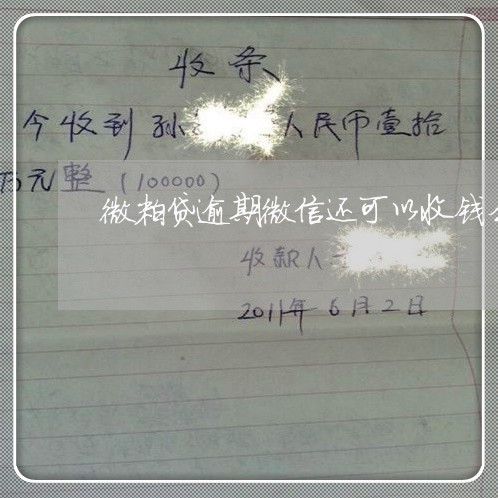 收条
今收到孙 人民币壹拾
万元整(100000)
微粒贷逾期微信还可以收钱
收款人
2011年6月2日